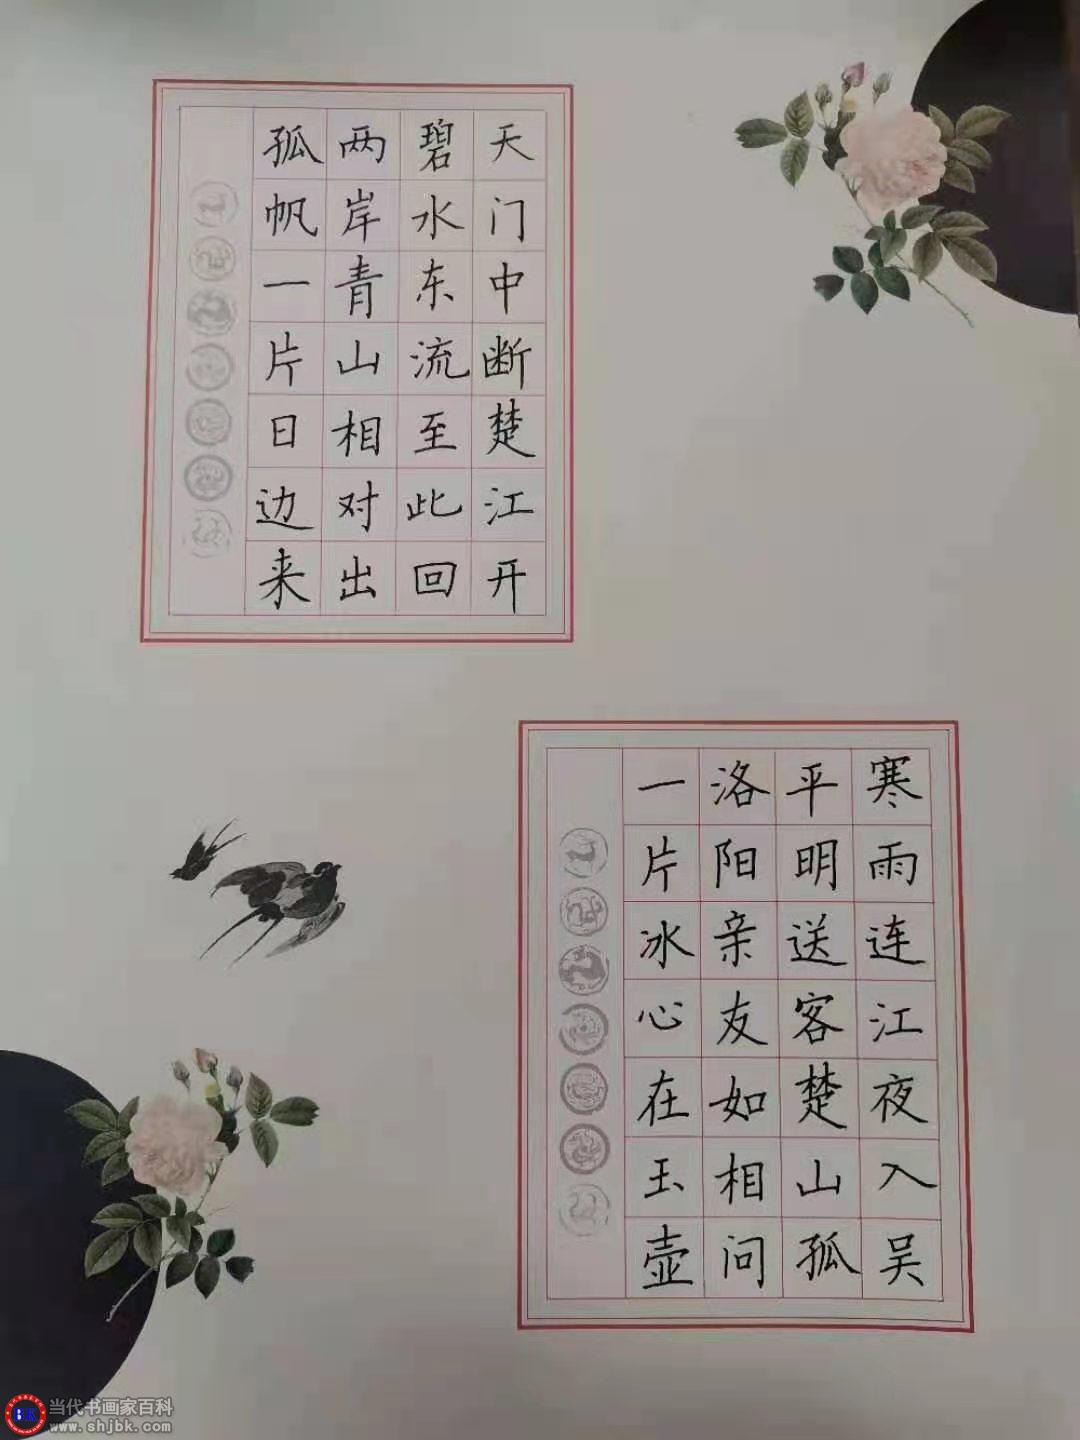 天门中断楚江开
碧水东流至此回
两岸青山相对出
孤帆一片日边来
寒雨连江夜入吴
平明送客楚山孤
洛阳亲友如相问
一片冰心在玉壶
BK
当代书画家百科
www.shjbk.com